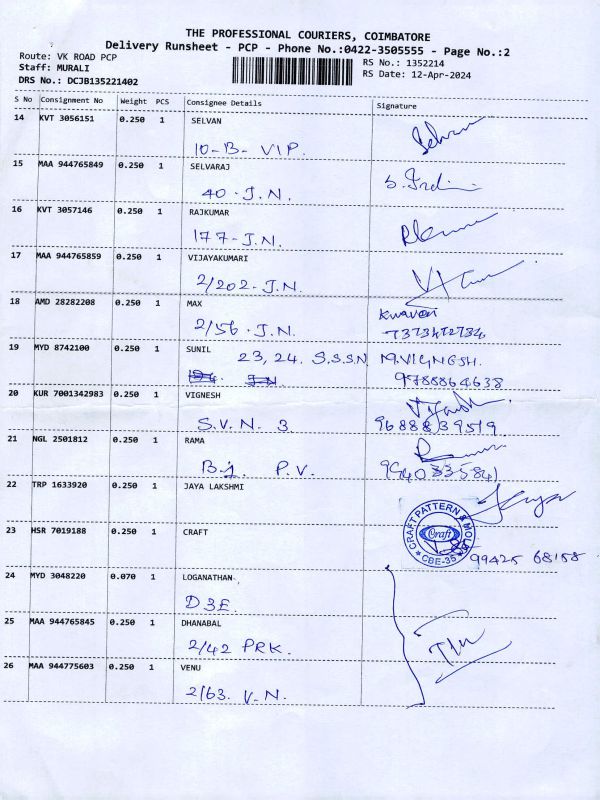 THE PROFESSIONAL COURIERS, COIMBATORE
Delivery Runsheet - PCP - Phone No.:0422-3505555 - Page No.:2
Route: VK ROAD PCP
Staff: MURALI
DRS No.: DCJB135221402
RS No.: 1352214
RS Date: 12-Apr-2024
S No Consignment No Weight PCS Consignee Details Signature
14 KVT 3056151 0.250 1 SELVAN
10-B- VIP.
15 MAA 944765849 0.250 1 SELVARAJ
40 - J.N.
16 KVT 3057146 0.250 1 RAJKUMAR
177- J.N.
17 MAA 944765859 0.250 1 VIJAYAKUMARI
2/202- J.N.
18 AMD 28282208 0.250 1 MAX
2/56 - J.N.
19 MYD 8742100 0.250 1 SUNIL 23, 24. S.S.S.N M.VIGNESH.
9788864638
20 KUR 7001342983 0.250 1 VIGNESH
S.V.N. 3 9688839519
21 NGL 2501812 0.250 1 RAMA
P.V.
22 TRP 1633920 0.250 1 JAYA LAKSHMI Jaya
23 HSR 7019188 0.250 1 CRAFT
CRAFT PATTERN & Craft CBE-35
99425 68158
24 MYD 3048220 0.070 1 LOGANATHAN
D3E
25 MAA 944765845 0.250 1 DHANABAL
2/42 PRK.
26 MAA 944775603 0.250 1 VENU
2/63. V.N.